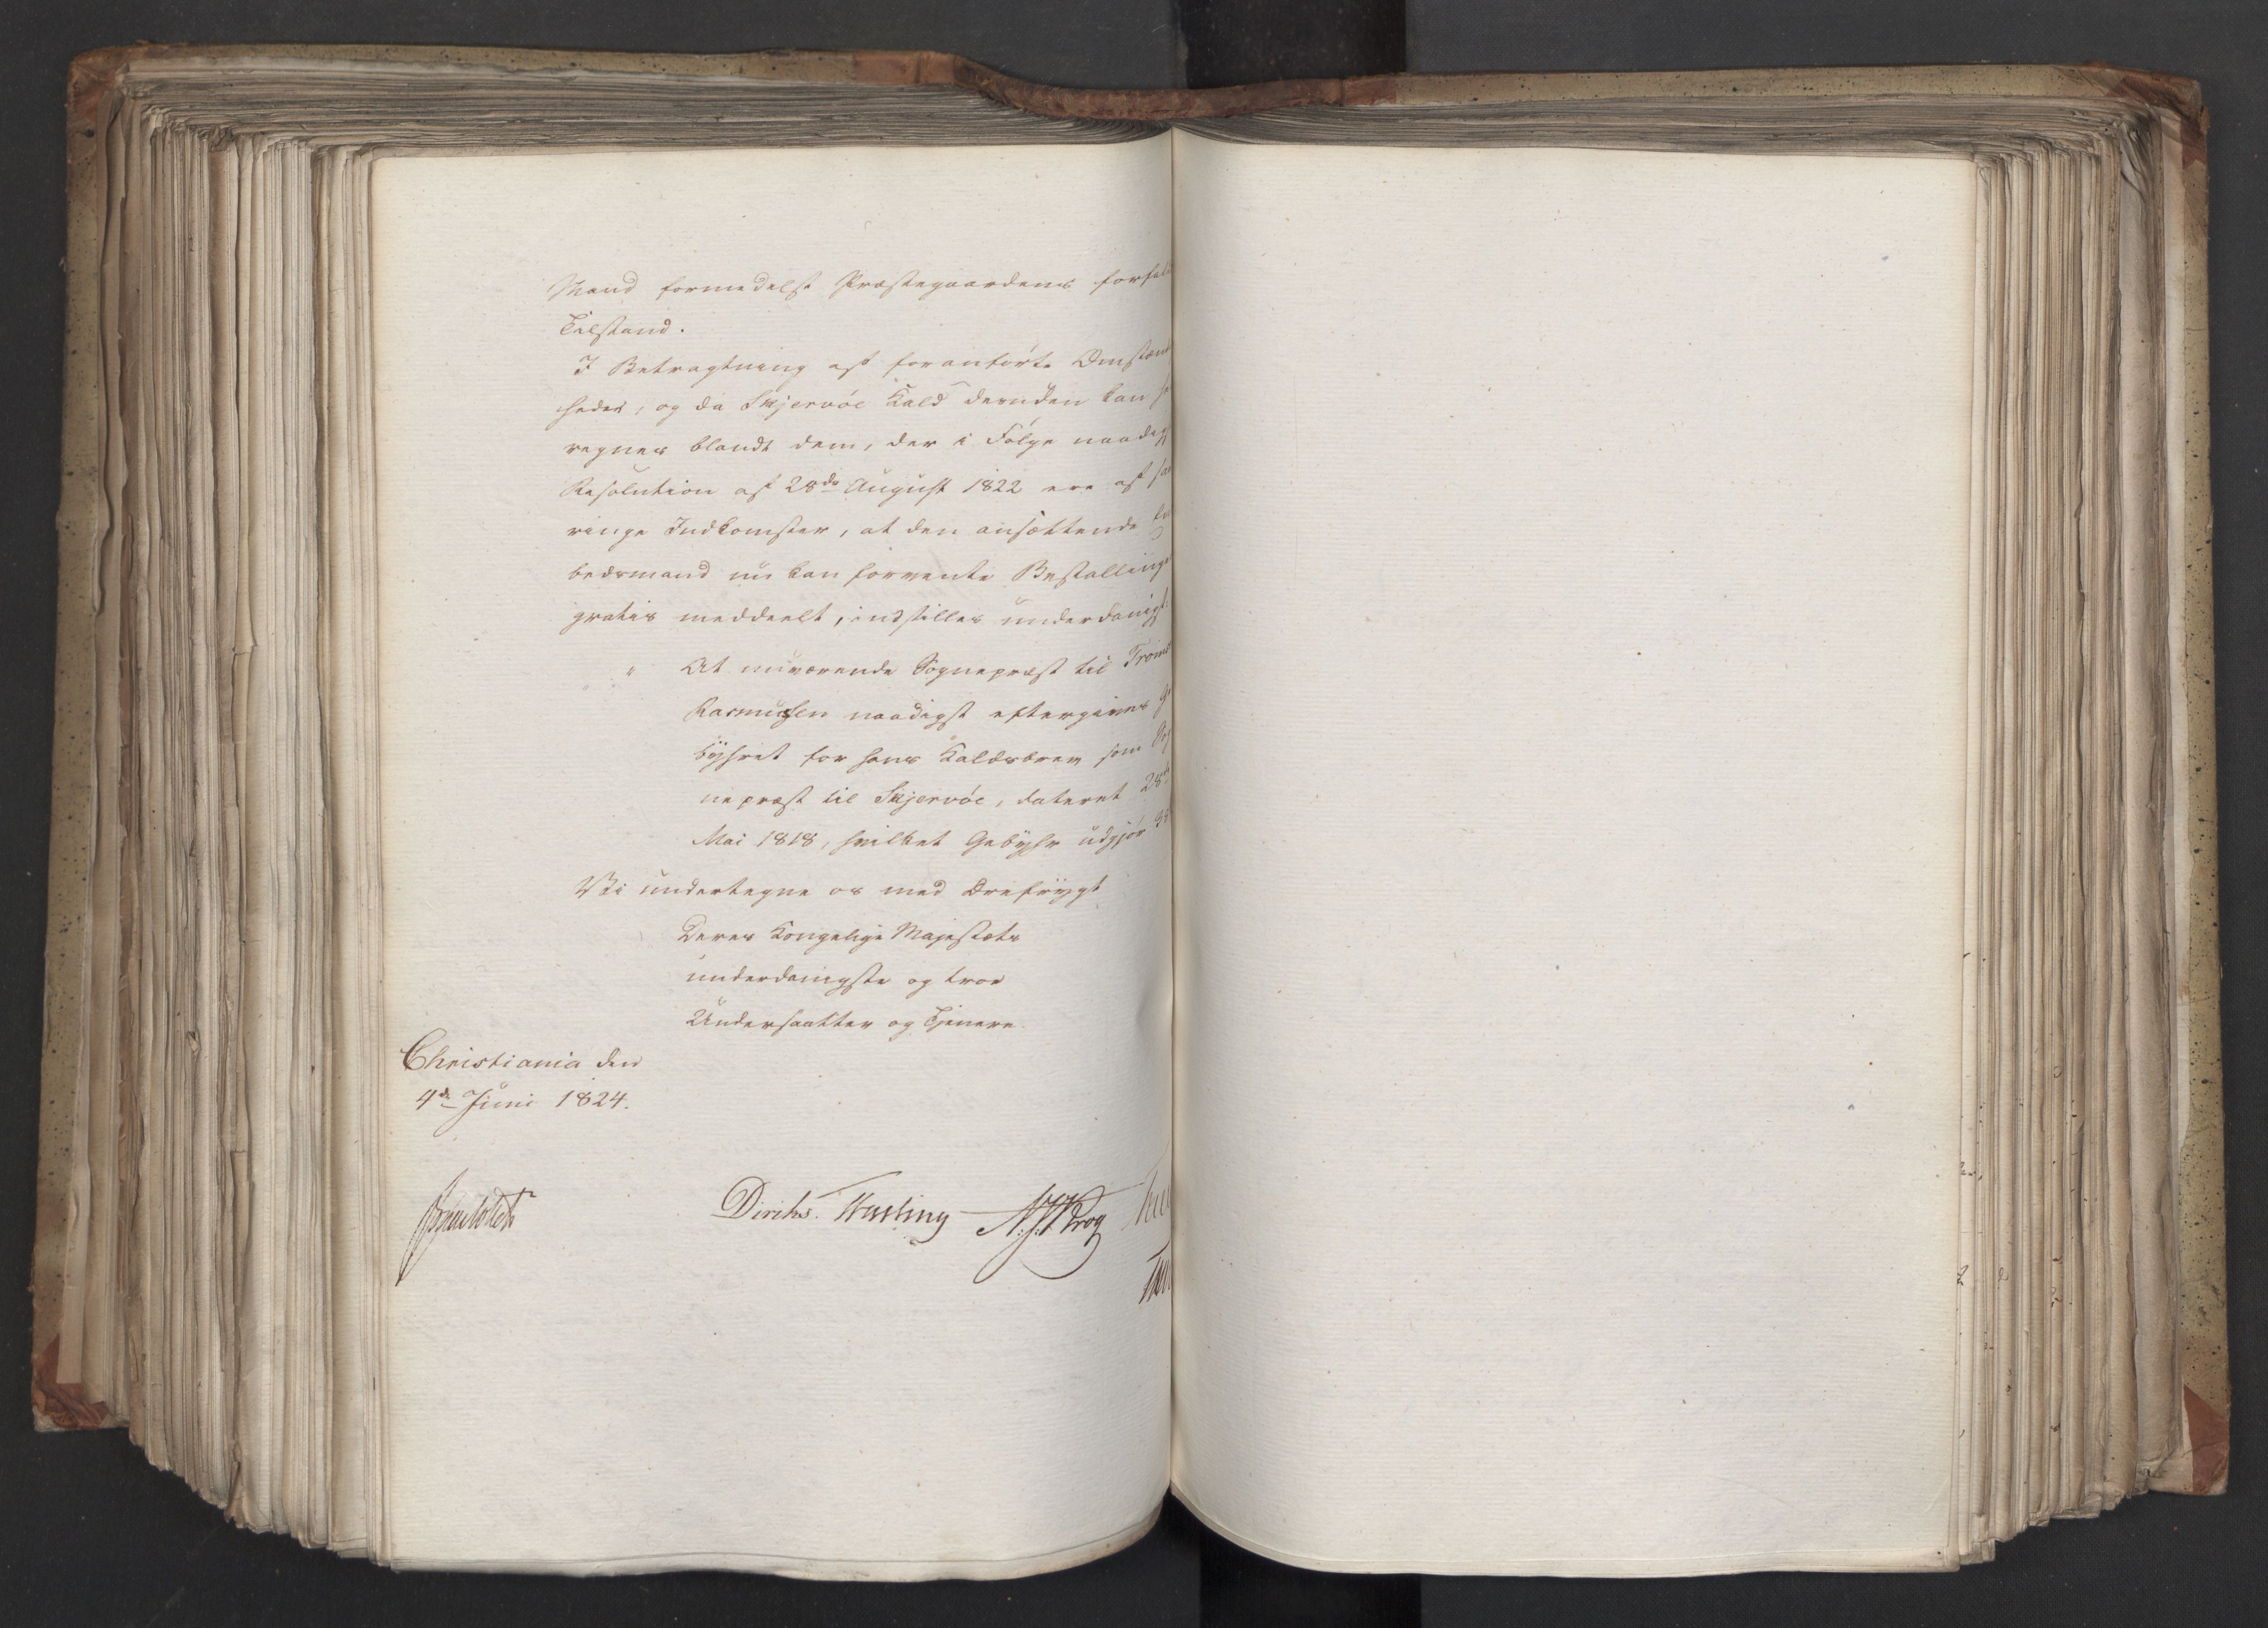 Mand formedelst Præstegaardens forfal
Tilstand.
I Betragtning af foranførte Omstæn
heder, og da Skjervöe Kald desuden kan
regnes blandt dem, der i Følge naadig
Resolution af 28de August 1822 ere af saa
ringe Indkomster, at den ansættende Em
bedsmand nu kan forvente Bestallinge
gratis meddeelt, indstilles underdanigst:
" At nuværende Sognepræst til Troms
Rasmussen naadigst eftergives Ge
byhret for hans Kaldsbrev som Sog
nepræst til Skjervöe, dateret 28de
Mai 1818, hvilket Gebyhr udgjör
Vi undertegne os med Ærefrygt
Deres Kongelige Majestæts
underdanigste og troe
Undersaatter og Tjenere.
Christiania den
4de Juni 1824.
Diriks. Treschow N.J.Krog